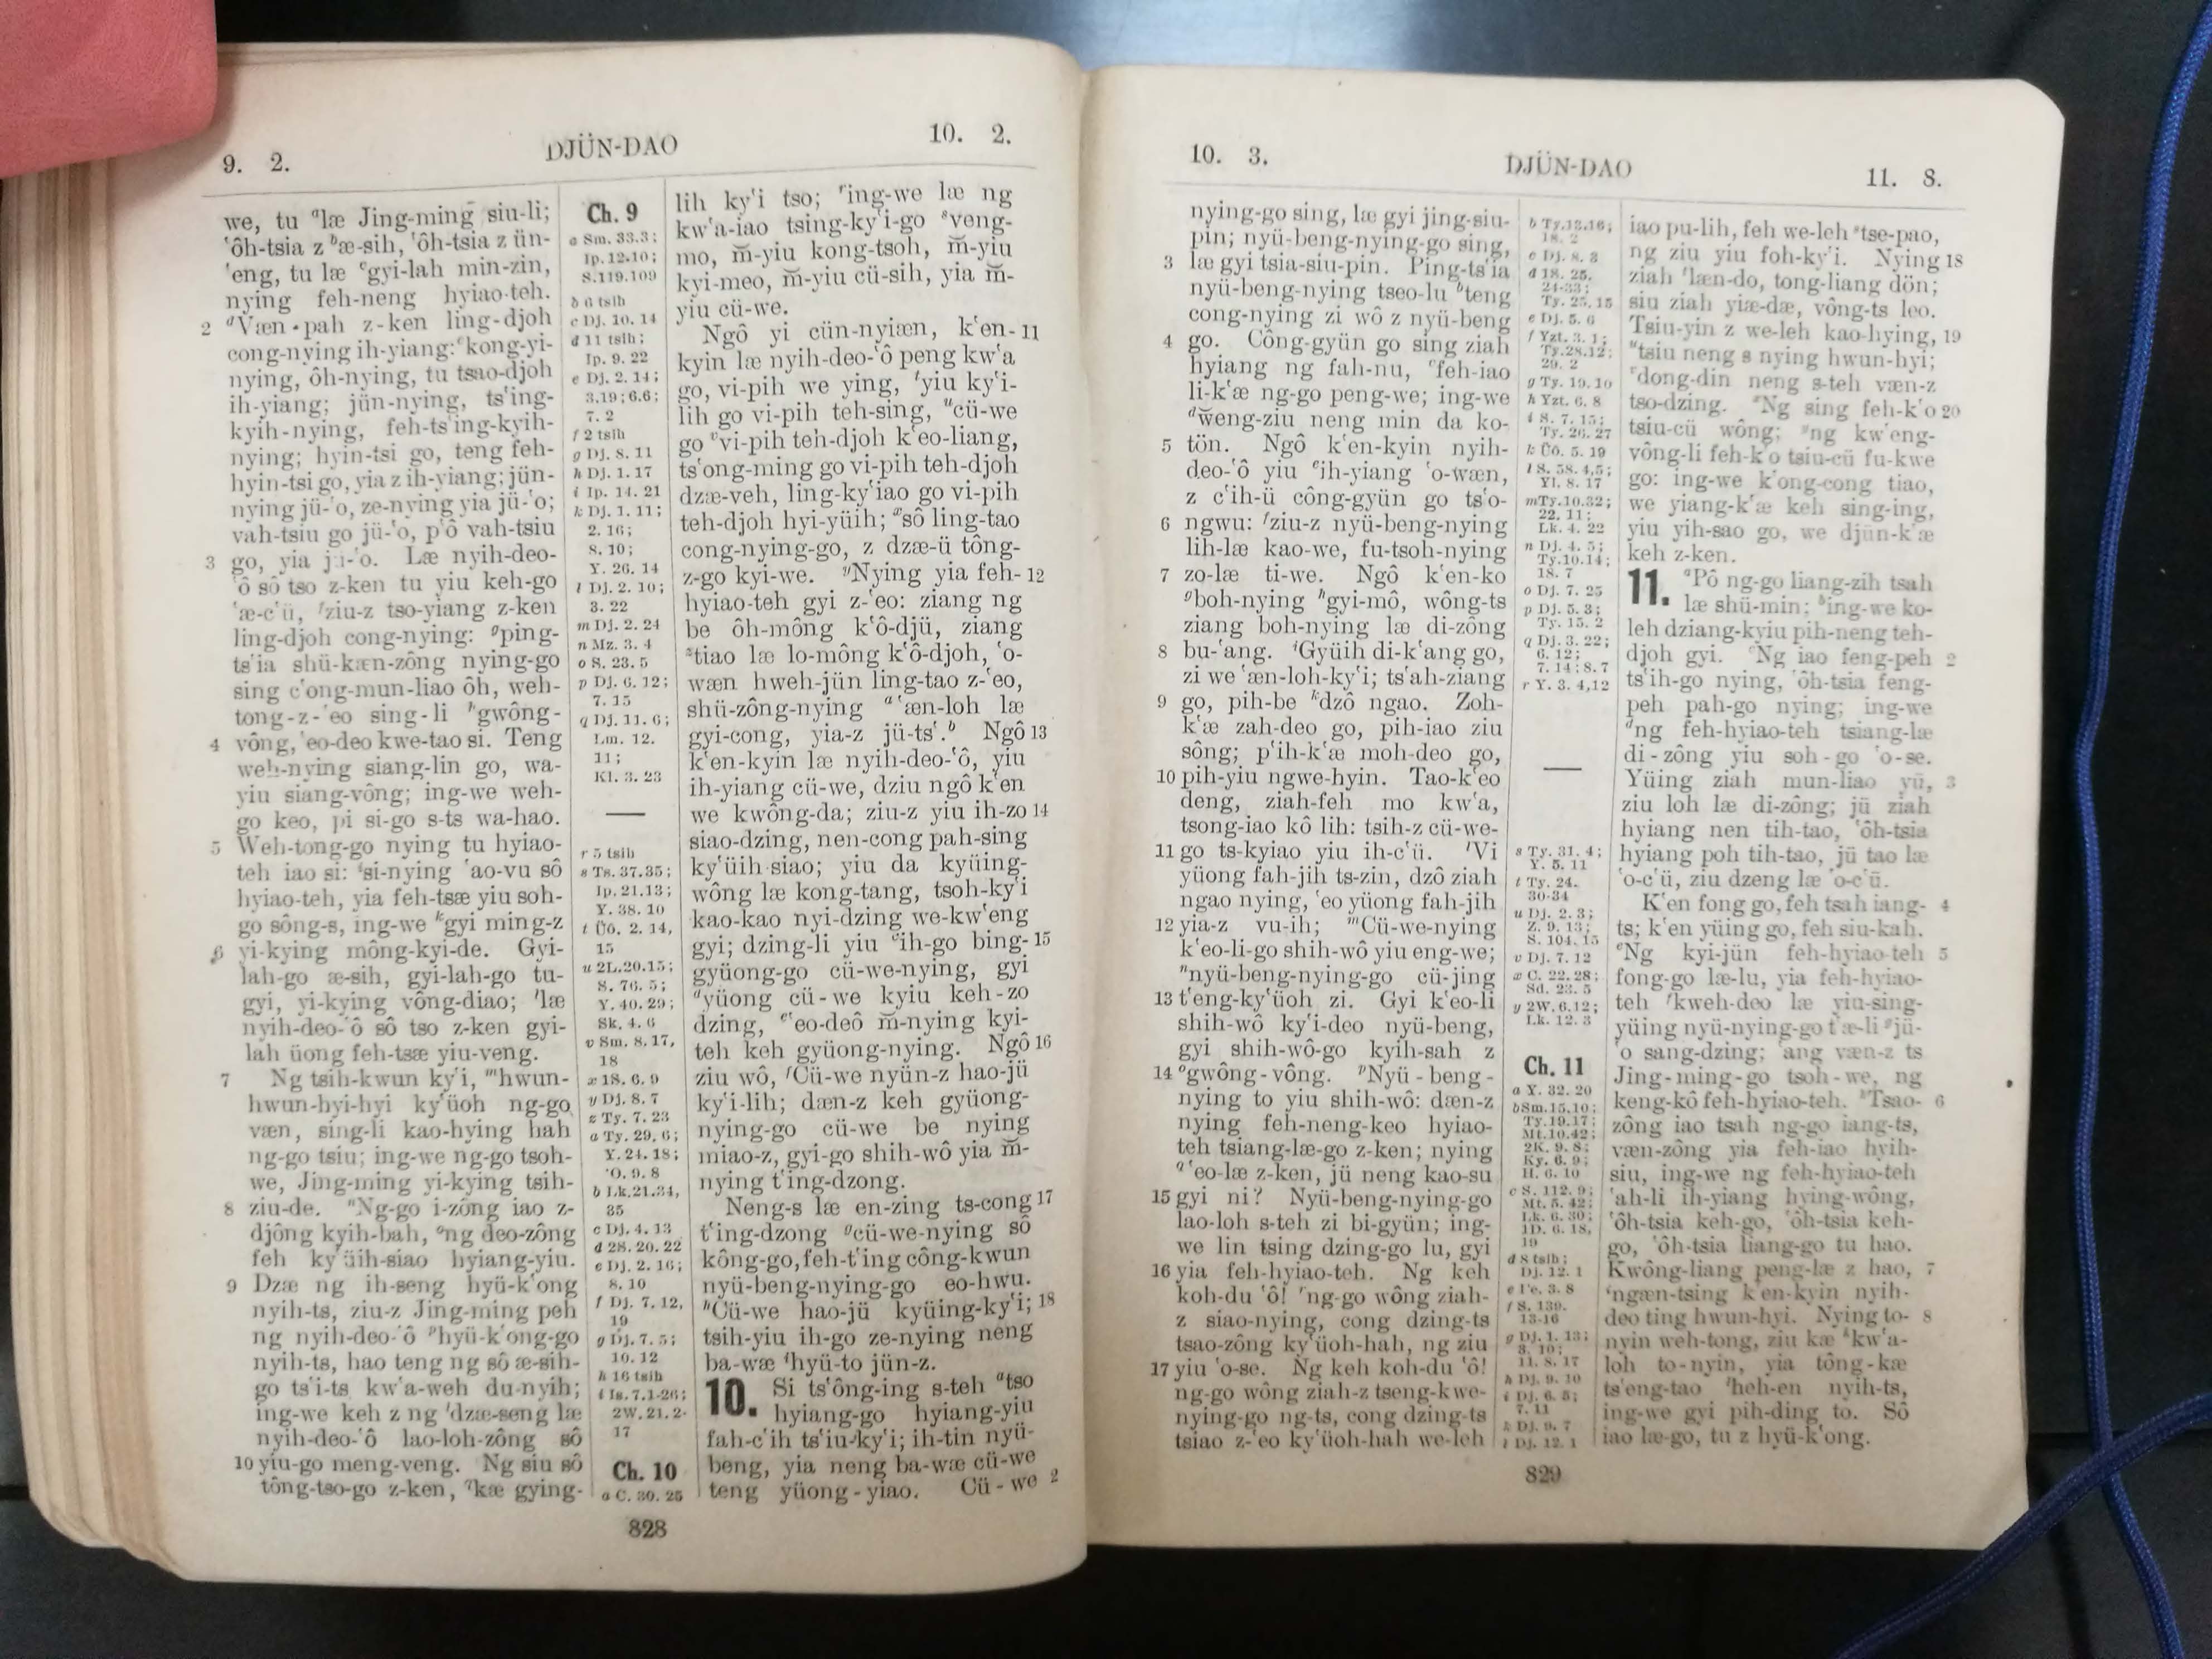 9. 2.
DJÜN-DAO
10. 2.
we, tu ᵃlæ Jing-ming siu-li;
ʻôh-tsia z ᵇæ-sih, ʻôh-tsia z ün-
ʻeng, tu læ ᶜgyi-lah min-zin,
nying feh-neng hyiao-teh.
2 ᵈVæn-pah z-ken ling-djoh
cong-nying ih-yiang: ᵉkong-yi-
nying, ôh-nying, tu tsao-djoh
ih-yiang; jün-nying, tsʻing-
kyih-nying, feh-tsʻing-kyih-
nying; hyin-tsi go, teng feh-
hyin-tsi go, yia z ih-yiang; jün-
nying jü-ʻo, ze-nying yia jü-ʻo;
vah-tsiu go jü-ʻo, pʻô vah-tsiu
3 go, yia jü-ʻo. Læ nyih-deo-
ʻô sô tso z-ken tu yiu keh-go
ʻæ-cʻü, ᶠziu-z tso-yiang z-ken
ling-djoh cong-nying: ᵍping-
tsʻia shü-kæn-zông nying-go
sing cʻong-mun-liao ôh, weh-
tong-z-ʻeo sing-li ʰgwông-
4 vông, ʻeo-deo kwe-tao si. Teng
weh-nying siang-lin go, wa-
yiu siang-vông; ing-we weh-
go keo, pi si-go s-ts wa-hao.
5 Weh-tong-go nying tu hyiao-
teh iao si: ⁱsi-nying ʻao-vu sô
hyiao-teh, yia feh-tsæ yiu soh-
go sông-s, ing-we ᵏgyi ming-z
6 yi-kying mông-kyi-de. Gyi-
lah-go æ-sih, gyi-lah-go tu-
gyi, yi-kying vông-diao; ˡlæ
nyih-deo-ʻô sô tso z-ken gyi-
lah üong feh-tsæ yiu-veng.
7 Ng tsih-kwun kyʻi, ᵐhwun-
hwun-hyi-hyi kyʻüoh ng-go
væn, sing-li kao-hying hah
ng-go tsiu; ing-we ng-go tsoh-
we, Jing-ming yi-kying tsih-
8 ziu-de. ⁿNg-go i-zông iao z-
djông kyih-bah, ᵒng deo-zông
feh kyʻüih-siao hyiang-yiu.
9 Dzæ ng ih-seng hyü-kʻong
nyih-ts, ziu-z Jing-ming peh
ng nyih-deo-ʻô ᵖhyü-kʻong-go
nyih-ts, hao teng ng sô æ-sih-
go tsʻi-ts kwʻa-weh du-nyih;
ing-we keh z ng ʻdzæ-seng læ
nyih-deo-ʻô lao-loh-zông sô
10 yiu-go meng-veng. Ng siu sô
tông-tso-go z-ken, ᑫkæ gying-
Ch. 9
a Sm. 33.3;
Ip. 12.10;
S.119.109
b 6 tsih
c Dj. 10. 14
d 11 tsih;
Ip. 9. 22
e Dj. 2. 14;
3.19; 6.6;
7. 2
f 2 tsih
g Dj. 8. 11
h Dj. 1. 17
i Ip. 14. 21
k Dj. 1. 11;
2. 16;
8. 10;
Y. 26. 14
l Dj. 2. 10;
3. 22
m Dj. 2. 24
n Mz. 3. 4
o S. 23. 5
p Dj. 6. 12;
7. 15
q Dj. 11. 6;
Lm. 12.
11;
Kl. 3. 23
r 5 tsih
s Ts. 37.35;
Ip. 21.13;
Y. 38. 10
t Üô. 2. 14,
15
u 2L.20.15;
S. 76. 5;
Y. 40. 29;
Sk. 4. 6
v Sm. 8. 17,
18
x 1S. 6. 9
y Dj. 8. 7
z Ty. 7. 23
a Ty. 29. 6;
Y. 24. 18;
ʻO. 9. 8
b Lk.21.34,
35
c Dj. 4. 13
d 2S. 20. 22
e Dj. 2. 16;
8. 10
f Dj. 7. 12,
19
g Dj. 7. 5;
10. 12
h 16 tsih
i Is. 7.1-26;
2W. 21. 2-
17
Ch. 10
a C. 30. 25
lih kyʻi tso; ʳing-we læ ng
kwʻa-iao tsing-kyʻi-go ˢveng-
mo, m̆-yiu kong-tsoh, m̆-yiu
kyi-meo, m̆-yiu cü-sih, yia m̆-
yiu cü-we.
Ngô yi cün-nyiæn, kʻen- 11
kyin læ nyih-deo-ʻô peng kwʻa
go, vi-pih we ying, ᵗyiu kyʻi-
lih go vi-pih teh-sing, ᵘcü-we
go ᵛvi-pih teh-djoh kʻeo-liang,
tsʻong-ming go vi-pih teh-djoh
dzæ-veh, ling-kyʻiao go vi-pih
teh-djoh hyi-yüih; ˣsô ling-tao
cong-nying-go, z dzæ-ü tông-
z-go kyi-we. ʸNying yia feh- 12
hyiao-teh gyi z-ʻeo: ziang ng
be ôh-mông kʻô-djü, ziang
ᶻtiao læ lo-mông kʻô-djoh, ʻo-
wæn hweh-jün ling-tao z-ʻeo,
shü-zông-nying ᵃʻæn-loh læ
gyi-cong, yia-z jü-tsʻ.ᵇ Ngô 13
kʻen-kyin læ nyih-deo-ʻô, yiu
ih-yiang cü-we, dziu ngô kʻen
we kwông-da; ziu-z yiu ih-zo 14
siao-dzing, nen-cong pah-sing
kyʻüih-siao; yiu da kyüing-
wông læ kong-tang, tsoh-kyʻi
kao-kao nyi-dzing we-kwʻeng
gyi; dzing-li yiu ᶜih-go bing- 15
gyüong-go cü-we-nying, gyi
ᵈyüong cü-we kyiu keh-zo
dzing, ᵉʻeo-deô m̆-nying kyi-
teh keh gyüong-nying. Ngô 16
ziu wô, ᶠCü-we nyün-z hao-jü
kyʻi-lih; dæn-z keh gyüong-
nying-go cü-we be nying
miao-z, gyi-go shih-wô yia m̆-
nying tʻing-dzong.
Neng-s læ en-zing ts-cong 17
tʻing-dzong ᵍcü-we-nying sô
kông-go, feh-tʻing công-kwun
nyü-beng-nying-go eo-hwu.
ʰCü-we hao-jü kyüing-kyʻi; 18
tsih-yiu ih-go ze-nying neng
ba-wæ ⁱhyü-to jün-z.
10. Si tsʻông-ing s-teh ᵃtso
hyiang-go hyiang-yiu
fah-cʻih tsʻiu-kyʻi; ih-tin nyü-
beng, yia neng ba-wæ cü-we
teng yüong-yiao. Cü-we 2
828
10. 3.
DJÜN-DAO
11. 8.
nying-go sing, læ gyi jing-siu-
pin; nyü-beng-nying-go sing,
3 læ gyi tsia-siu-pin. Ping-tsʻia
nyü-beng-nying tseo-lu ᵇteng
cong-nying zi wô z nyü-beng
4 go. Công-gyün go sing ziah
hyiang ng fah-nu, ᶜfeh-iao
li-kʻæ ng-go peng-we; ing-we
ᵈweng-ziu neng min da ko-
5 tön. Ngô kʻen-kyin nyih-
deo-ʻô yiu ᵉih-yiang ʻo-wæn,
z cʻih-ü công-gyün go tsʻo-
6 ngwu: ᶠziu-z nyü-beng-nying
lih-læ kao-we, fu-tsoh-nying
7 zo-læ ti-we. Ngô kʻen-ko
ᵍboh-nying ʰgyi-mô, wông-ts
ziang boh-nying læ di-zông
8 bu-ʻang. ⁱGyüih di-kʻang go,
zi we ʻæn-loh-kyʻi; tsʻah-ziang
9 go, pih-be ᵏdzô ngao. Zoh-
kʻæ zah-deo go, pih-iao ziu
sông; pʻih-kʻæ moh-deo go,
10 pih-yiu ngwe-hyin. Tao-kʻeo
deng, ziah-feh mo kwʻa,
tsong-iao kô lih: tsih-z cü-we-
11 go ts-kyiao yiu ih-cʻü. ˡVi
yüong fah-jih ts-zin, dzô ziah
ngao nying, ʻeo yüong fah-jih
12 yia-z vu-ih; ᵐCü-we-nying
kʻeo-li-go shih-wô yiu eng-we;
ⁿnyü-beng-nying-go cü-jing
13 tʻeng-kyʻüoh zi. Gyi kʻeo-li
shih-wô kyʻi-deo nyü-beng,
gyi shih-wô-go kyih-sah z
14 ᵒgwông-vông. ᵖNyü-beng-
nying to yiu shih-wô: dæn-z
nying feh-neng-keo hyiao-
teh tsiang-læ-go z-ken; nying
ᑫʻeo-læ z-ken, jü neng kao-su
15 gyi ni? Nyü-beng-nying-go
lao-loh s-teh zi bi-gyün; ing-
we lin tsing dzing-go lu, gyi
16 yia feh-hyiao-teh. Ng keh
koh-du ʻô! ʳng-go wông ziah-
z siao-nying, cong dzing-ts
tsao-zông kyʻüoh-hah, ng ziu
17 yiu ʻo-se. Ng keh koh-du ʻô!
ng-go wông ziah-z tseng-kwe-
nying-go ng-ts, cong dzing-ts
tsiao z-ʻeo kyʻüoh-hah we-leh
b Ty.13.16;
18. 2
c Dj. 8. 3
d 1S. 25.
24-33;
Ty. 25. 15
e Dj. 5. 6
f Yzt. 3. 1;
Ty.28.12;
29. 2
g Ty. 19. 10
h Yzt. 6. 8
i S. 7. 15;
Ty. 26. 27
k Üô. 5. 19
l S. 58. 4,5;
Yl. 8. 17
m Ty. 10.32;
22. 11;
Lk. 4. 22
n Dj. 4. 5;
Ty.10.14;
18. 7
o Dj. 7. 25
p Dj. 5. 3;
Ty. 15. 2
q Dj. 3. 22;
6. 12;
7. 14; 8. 7
r Y. 3. 4,12
s Ty. 31. 4;
Y. 5. 11
t Ty. 24.
30-34
u Dj. 2. 3;
Z. 9. 13;
S. 104. 15
v Dj. 7. 12
x C. 22. 28;
Sd. 23. 5
y 2W. 6.12;
Lk. 12. 3
Ch. 11
a Y. 32. 20
b Sm.15.10;
Ty.19.17;
Mt.10.42;
2K. 9. 8;
Ky. 6. 9;
H. 6. 10
c S. 112. 9;
Mt. 5. 42;
Lk. 6. 30;
1D. 6. 18,
19
d 8 tsih;
Dj. 12. 1
f S. 139.
13-16
g Dj. 1. 13;
3. 10;
11. 8. 17
h Dj. 9. 10
i Dj. 6. 3;
7. 11
k Dj. 9. 7
l Dj. 12. 1
iao pu-lih, feh we-leh ˢtse-pao,
ng ziu yiu foh-kyʻi. Nying 18
ziah ᵗlæn-do, tong-liang dön;
siu ziah yiæ-dæ, vông-ts leo.
Tsiu-yin z we-leh kao-hying, 19
ᵘtsiu neng s nying hwun-hyi;
ᵛdong-din neng s-teh væn-z
tso-dzing. ˣNg sing feh-kʻo 20
tsiu-cü wông; ʸng kwʻeng-
vông-li feh-kʻo tsiu-cü fu-kwe
go: ing-we kʻong-cong tiao,
we yiang-kʻæ keh sing-ing,
yiu yih-sao go, we djün-kʻæ
keh z-ken.
11. ᵃPô ng-go liang-zih tsah
læ shü-min; ᵇing-we ko-
leh dziang-kyiu pih-neng teh-
djoh gyi. ᶜNg iao feng-peh 2
tsʻih-go nying, ʻôh-tsia feng-
peh pah-go nying; ing-we
ᵈng feh-hyiao-teh tsiang-læ
di-zông yiu soh-go ʻo-se.
Yüing ziah mun-liao yü, 3
ziu loh læ di-zông; jü ziah
hyiang nen tih-tao, ʻôh-tsia
hyiang poh tih-tao, jü tao læ
ʻo-cʻü, ziu dzeng læ ʻo-cʻü.
Kʻen fong go, feh tsah iang- 4
ts; kʻen yüing go, feh siu-kah.
ᵉNg kyi-jün feh-hyiao-teh 5
fong-go læ-lu, yia feh-hyiao-
teh ᶠkweh-deo læ yiu-sing-
yüing nyü-nying-go tʻæ-li ᵍjü-
ʻo sang-dzing; ʻang væn-z ts
Jing-ming-go tsoh-we, ng
keng-kô feh-hyiao-teh. ʰTsao- 6
zông iao tsah ng-go iang-ts,
væn-zông yia feh-iao hyih-
siu, ing-we ng feh-hyiao-teh
ʻah-li ih-yiang hying-wông,
ʻôh-tsia keh-go, ʻôh-tsia keh-
go, ʻôh-tsia liang-go tu hao.
Kwông-liang peng-læ z hao, 7
ⁱngæn-tsing kʻen-kyin nyih-
deo ting hwun-hyi. Nying to- 8
nyin weh-tong, ziu kæ ᵏkwʻa-
loh to-nyin, yia tông-kæ
tsʻeng-tao ˡheh-en nyih-ts,
ing-we gyi pih-ding to. Sô
iao læ-go, tu z hyü-kʻong.
829